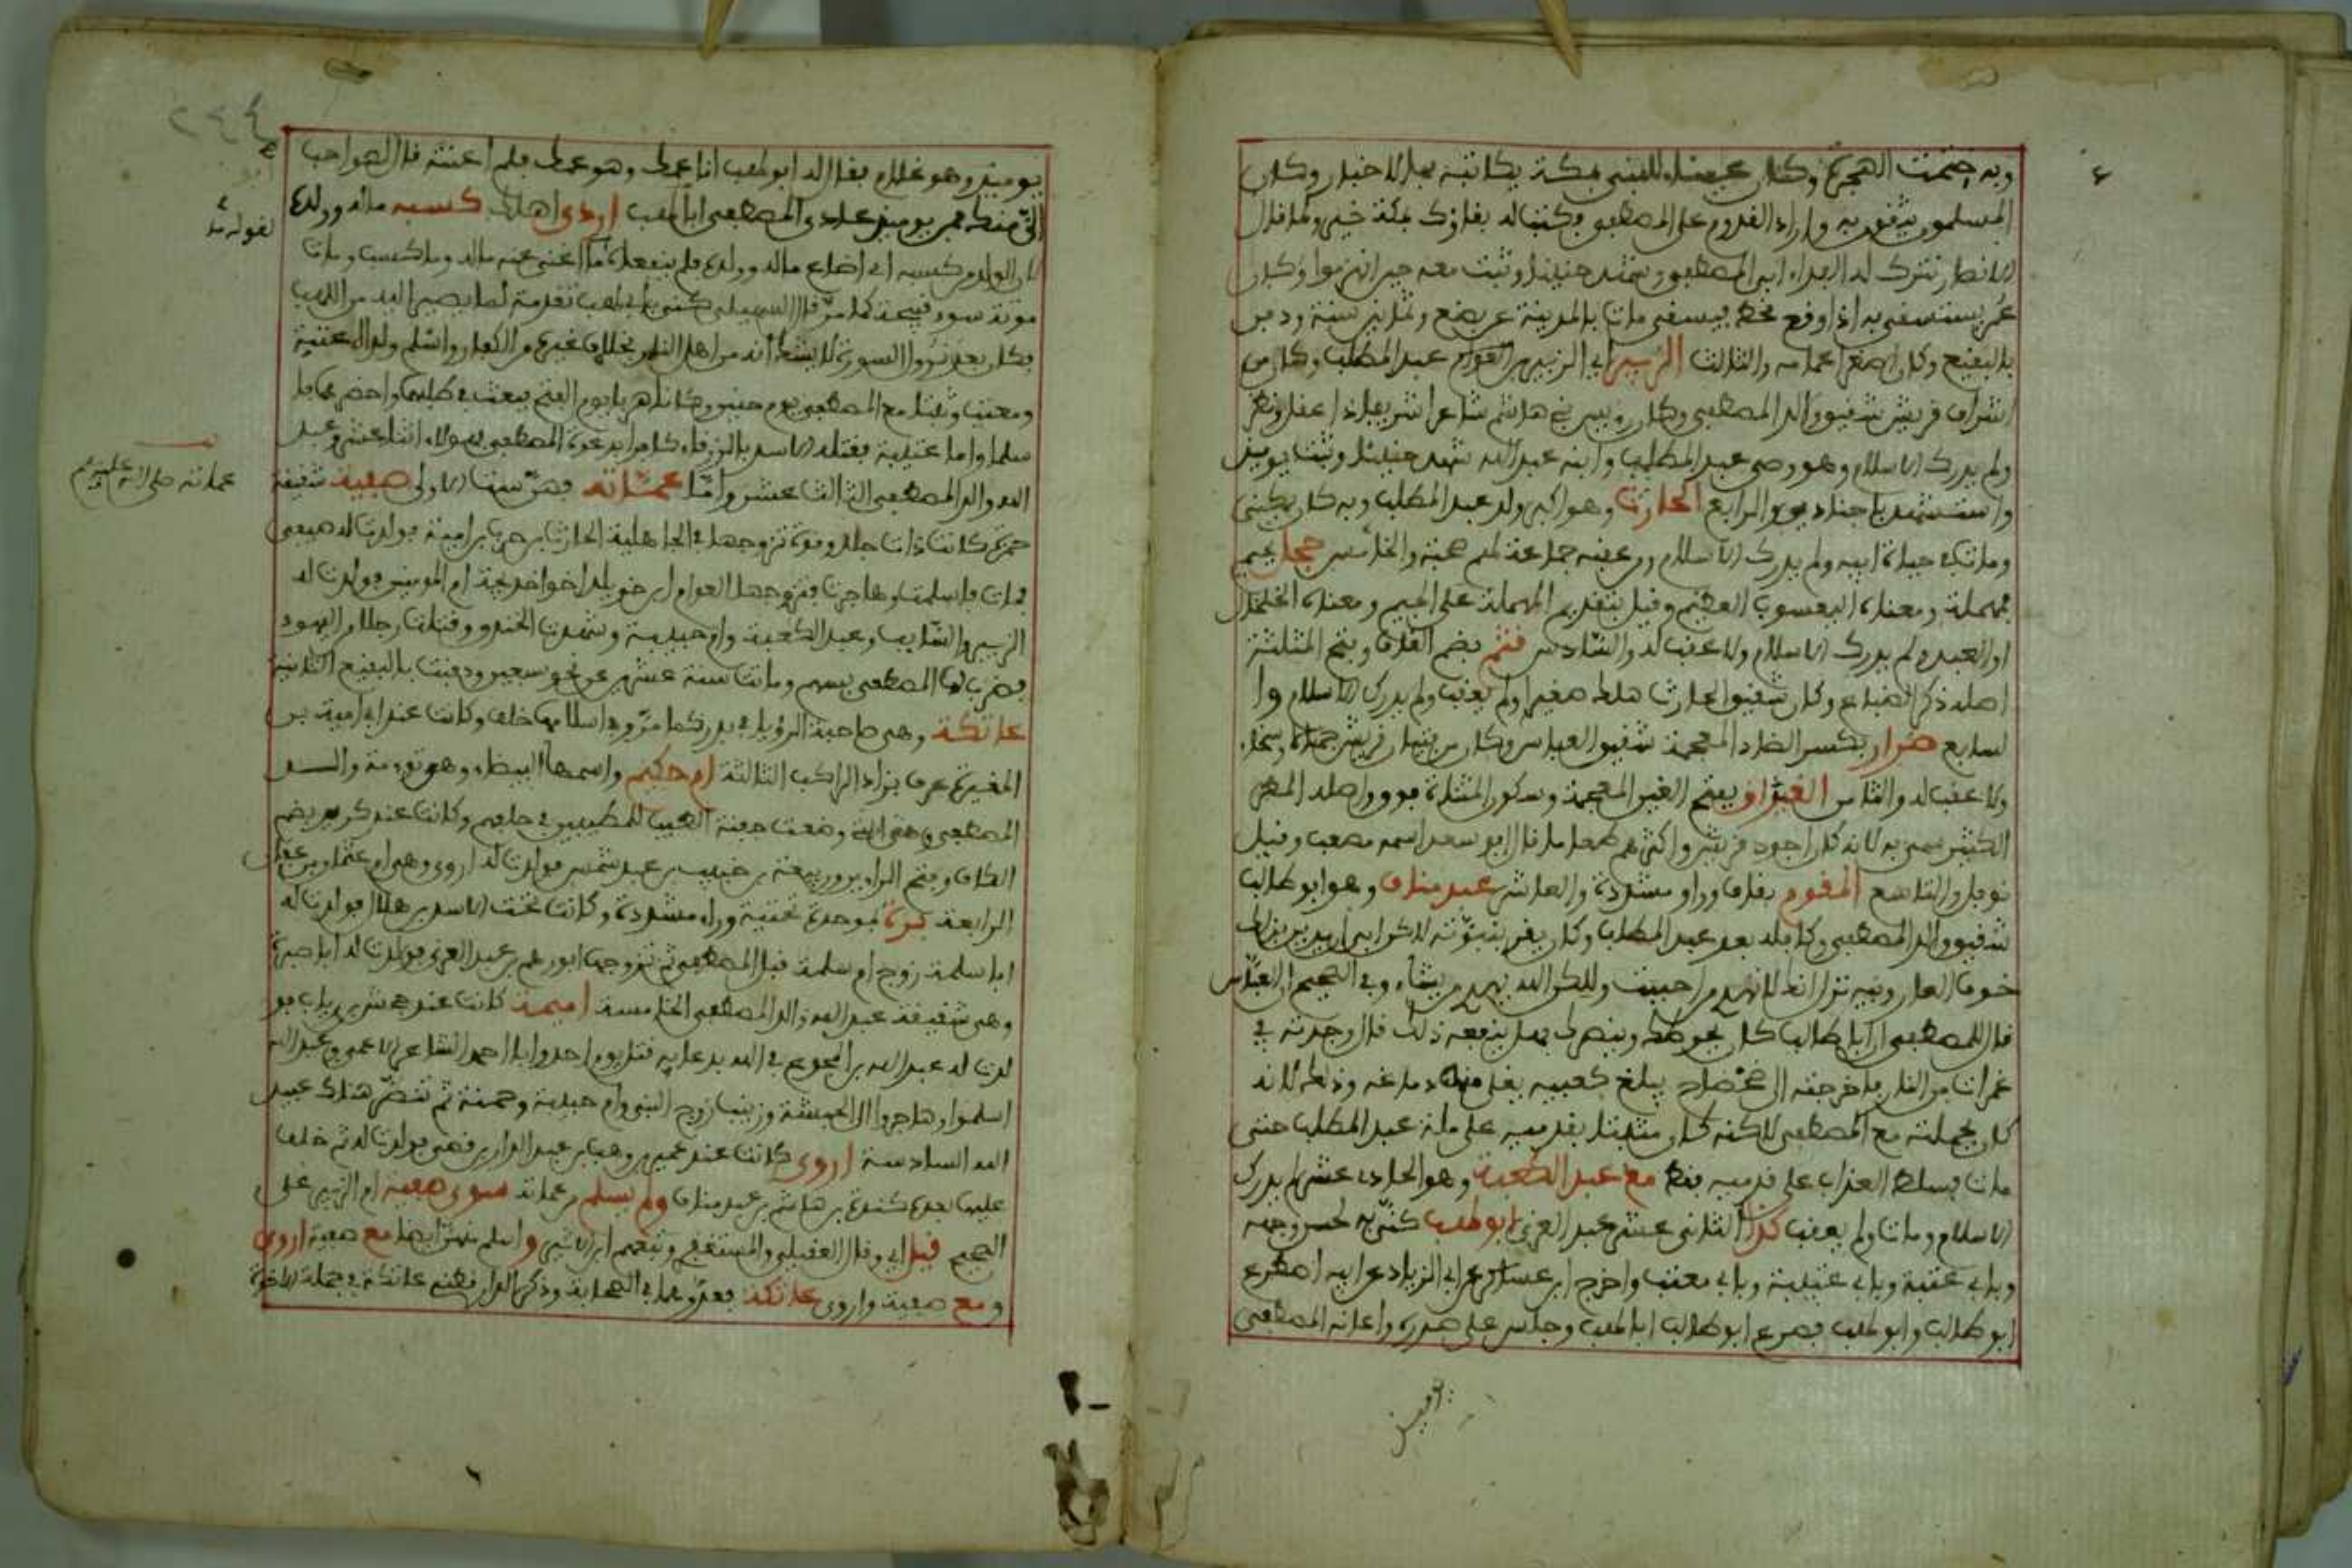 وبه ختمت الهجرة وكان عينا للنبي بمكة يكاتبه بالاخبار وكان
المسلمون يثقون به واراد القدوم على المصطفى فكتب اليه مقامك بمكة خير ولما قال
الانصار نترك له الفداء ابى المصطفى وشهد حنينا وثبت معه حين انهزموا وكان
عمر يستسقي به اذا وقع قحط فيسقى مات بالمدينة عن بضع وثمانين سنة ودفن
بالبقيع وكان اصغر اعمامه والثالث الزبير ابي الزبير عبد المطلب وكان من
اشراف قريش شقيق والد المصطفى وكان رييس بني هاشم شاعرا شريفا ذا عقل ونظر
ولم يدرك الاسلام وهو وصي عبد المطلب وابنه عبد الله شهد حنينا وثبت يوميذ
واستشهد باجنادين والرابع الحارث وهو اكبر ولد عبد المطلب وبه كان يكنى
ومات في حياة ابيه ولم يدرك الاسلام ومن عقبه جماعة لهم صحبة والخامس جحل بجيم
فمهملة ومعناه اليعسوب العظيم وقيل بتقديم المهملة على الجيم ومعناه الخلخال
او القيد ولم يدرك الاسلام ولا عقب له والسادس قثم بضم القاف وفتح المثلثة
اصله ذكر الضباع وكان شقيق الحارث هلك صغيرا ولم يعقب ولم يدرك الاسلام وا
لسابع ضرار بكسر الضاد المعجمة شقيق العباس وكان من فتيان قريش جمالا وسخاء
ولا عقب له والثامن الغيداق بفتح الغين المعجمة وسكون المثناة واصله المطر
الكثير سمي به لانه كان اجود قريش واكثرهم طعاما قال ابو سعد اسمه مصعب وقيل
نوفل والتاسع المقوم بقاف وواو مشددة والعاشر عبد مناف وهو ابو طالب
شقيق والد المصطفى وكافله بعد عبد المطلب وكان يقر بنبوته لاكن ابى ان يدين بذلك
خوف العار وفيه نزل انك لا تهدي من احببت ولاكن الله يهدي من يشاء وفي الصحيح ان العباس
قال للمصطفى ان ابا طالب كان يحوطك وينصرك فهل ينفعه ذلك قال وجدته في
غمرات من النار فاخرجته الى ضحضاح يبلغ كعبيه يغلي منها دماغه وذلك لانه
كان بجملته مع المصطفى لاكنه كان مثبتا بقدميه على ملة عبد المطلب حتى
مات فسلط العذاب على قدميه فقط مع عبد الكعبة وهو الحادي عشر لم يدرك
الاسلام ومات ولم يعقب كذا الثاني عشر عبد العزى ابو لهب كني به لحسن وجهه
وبابي عتبة وبابي عتيبة وبابي معتب واخرج ابن عساكر عن ابي الزناد عن ابيه اصطرع
ابو طالب وابو لهب فصرع ابو طالب ابا لهب وجلس على صدره واعانه المصطفى
يوميذ وهو غلام فقال له ابو لهب انا عمك وهو عمك فلم اعنته قال هو احب
الي منك فمن يوميذ عادى المصطفى ابا لهب اودى اهلك كسبه ماله وولده
لان الولد من كسبه اي اضاع ماله وولده فلم ينفعاه ما اغنى عنه ماله وما كسب ومات
موتة سوء قبيحة كما مر قال السهيلي كني بابي لهب تقدمة لما يصير اليه من اللهب
فكان بعد نزول السورة لا يشك انه من اهل النار بخلاف غيره من الكفار واسلم ولداه عتبة
ومعتب وثبتا مع المصطفى يوم حنين وكانا هربا يوم الفتح فبعث في طلبهما واحضرهما فا
سلما واما عتيبة فقتله الاسد بالزرقاء كما مر بدعوة المصطفى فهولاء اثنا عشر وعبد
الله والد المصطفى الثالث عشر واما عماته فهن ست الاولى صفية شقيقة
حمزة كانت ذات جلد وقوة تزوجها في الجاهلية الحارث بن حرب بن امية فولدت له صيفي
فمات فاسلمت وهاجرت فتزوجها العوام بن خويلد اخو خديجة ام المومنين فولدت له
الزبير والسايب وعبد الكعبة وام حبيبة وشهدت الخندق وقتلت رجلا من اليهود
فضرب لها المصطفى بسهم وماتت سنة عشرين عن نحو سبعين ودفنت بالبقيع الثانية
عاتكة وهي صاحبة الرؤيا في بدر كما مر وفي اسلامها خلف وكانت عند ابي امية بن
المغيرة عرف بزاد الراكب الثالثة ام حكيم واسمها البيضاء وهي توءمة والد
المصطفى وهي التي وضعت جفنة الطيب للمطيبين في حلفهم وكانت عند كريز بضم
الكاف وفتح الراء بن ربيعة بن حبيب بن عبد شمس فولدت له اروى وهي ام عثمان بن عفان
الرابعة برة بموحدة تحتية وراء مشددة وكانت تحت الاسد بن هلال فولدت له
ابا سلمة زوج ام سلمة قبل المصطفى ثم تزوجها ابو رهم بن عبد العزى فولدت له ابا صبرة
وهي شقيقة عبد الله والد المصطفى الخامسة اميمة كانت عند جحش بن رياب فو
لدت له عبد الله بن المجدع في الله بدعايه قتل يوم احد وابا احمد الشاعر الاعمى وعبد الله
اسلموا وهاجروا الى الحبشة وزينب زوج النبي وام حبيبة وحمنة ثم تنصر هناك عبيد
الله السادسة اروى كانت عند عمير بن وهب بن عبد الدار بن قصي فولدت له ثم خلف
عليها بعده كندة بن هاشم بن عبد مناف ولم يسلم من عماته سوى صفية ام الزبير على
الصحيح قيل اي وقال العقيلي والمستغفري وتبعهم ابن الاثير واسلم منهن ايضا مع صفية اروى
ومع صفية واروى عاتكة فعدوهما في الصحابة وذكر الدارقطني عاتكة في جملة الاخوة
عماته صلى الله عليه وسلم
يوميذ